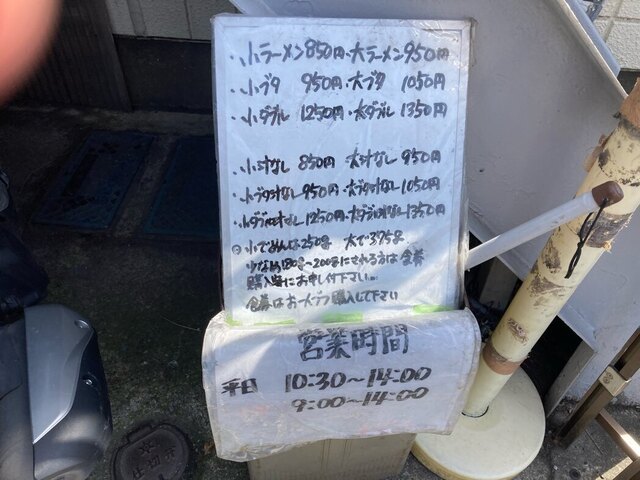 ・小ラーメン850円・大ラーメン950円
・小ブタ 950円・大ブタ 1050円
・小ダブル 1250円・大ダブル 1350円
・小汁なし 850円・大汁なし 950円
・小ブタ汁なし 950円・大ブタ汁なし1050円
・小ダブル汁なし1250円・大ダブル汁なし1350円
◎小でめんは250g 大で375g
少なめ180g〜200gにされる方は食券
購入時にお申し付下さい。
食券はお一人づつ購入して下さい
営業時間
平日 10:30〜14:00
9:00〜14:00